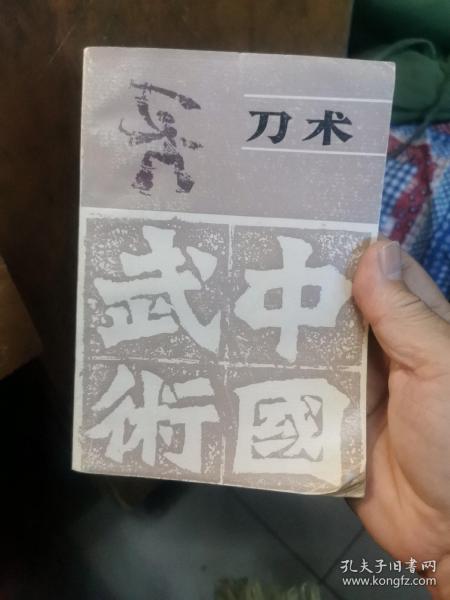 刀术
中國
武術
孔夫子旧书网
www.kongfz.com